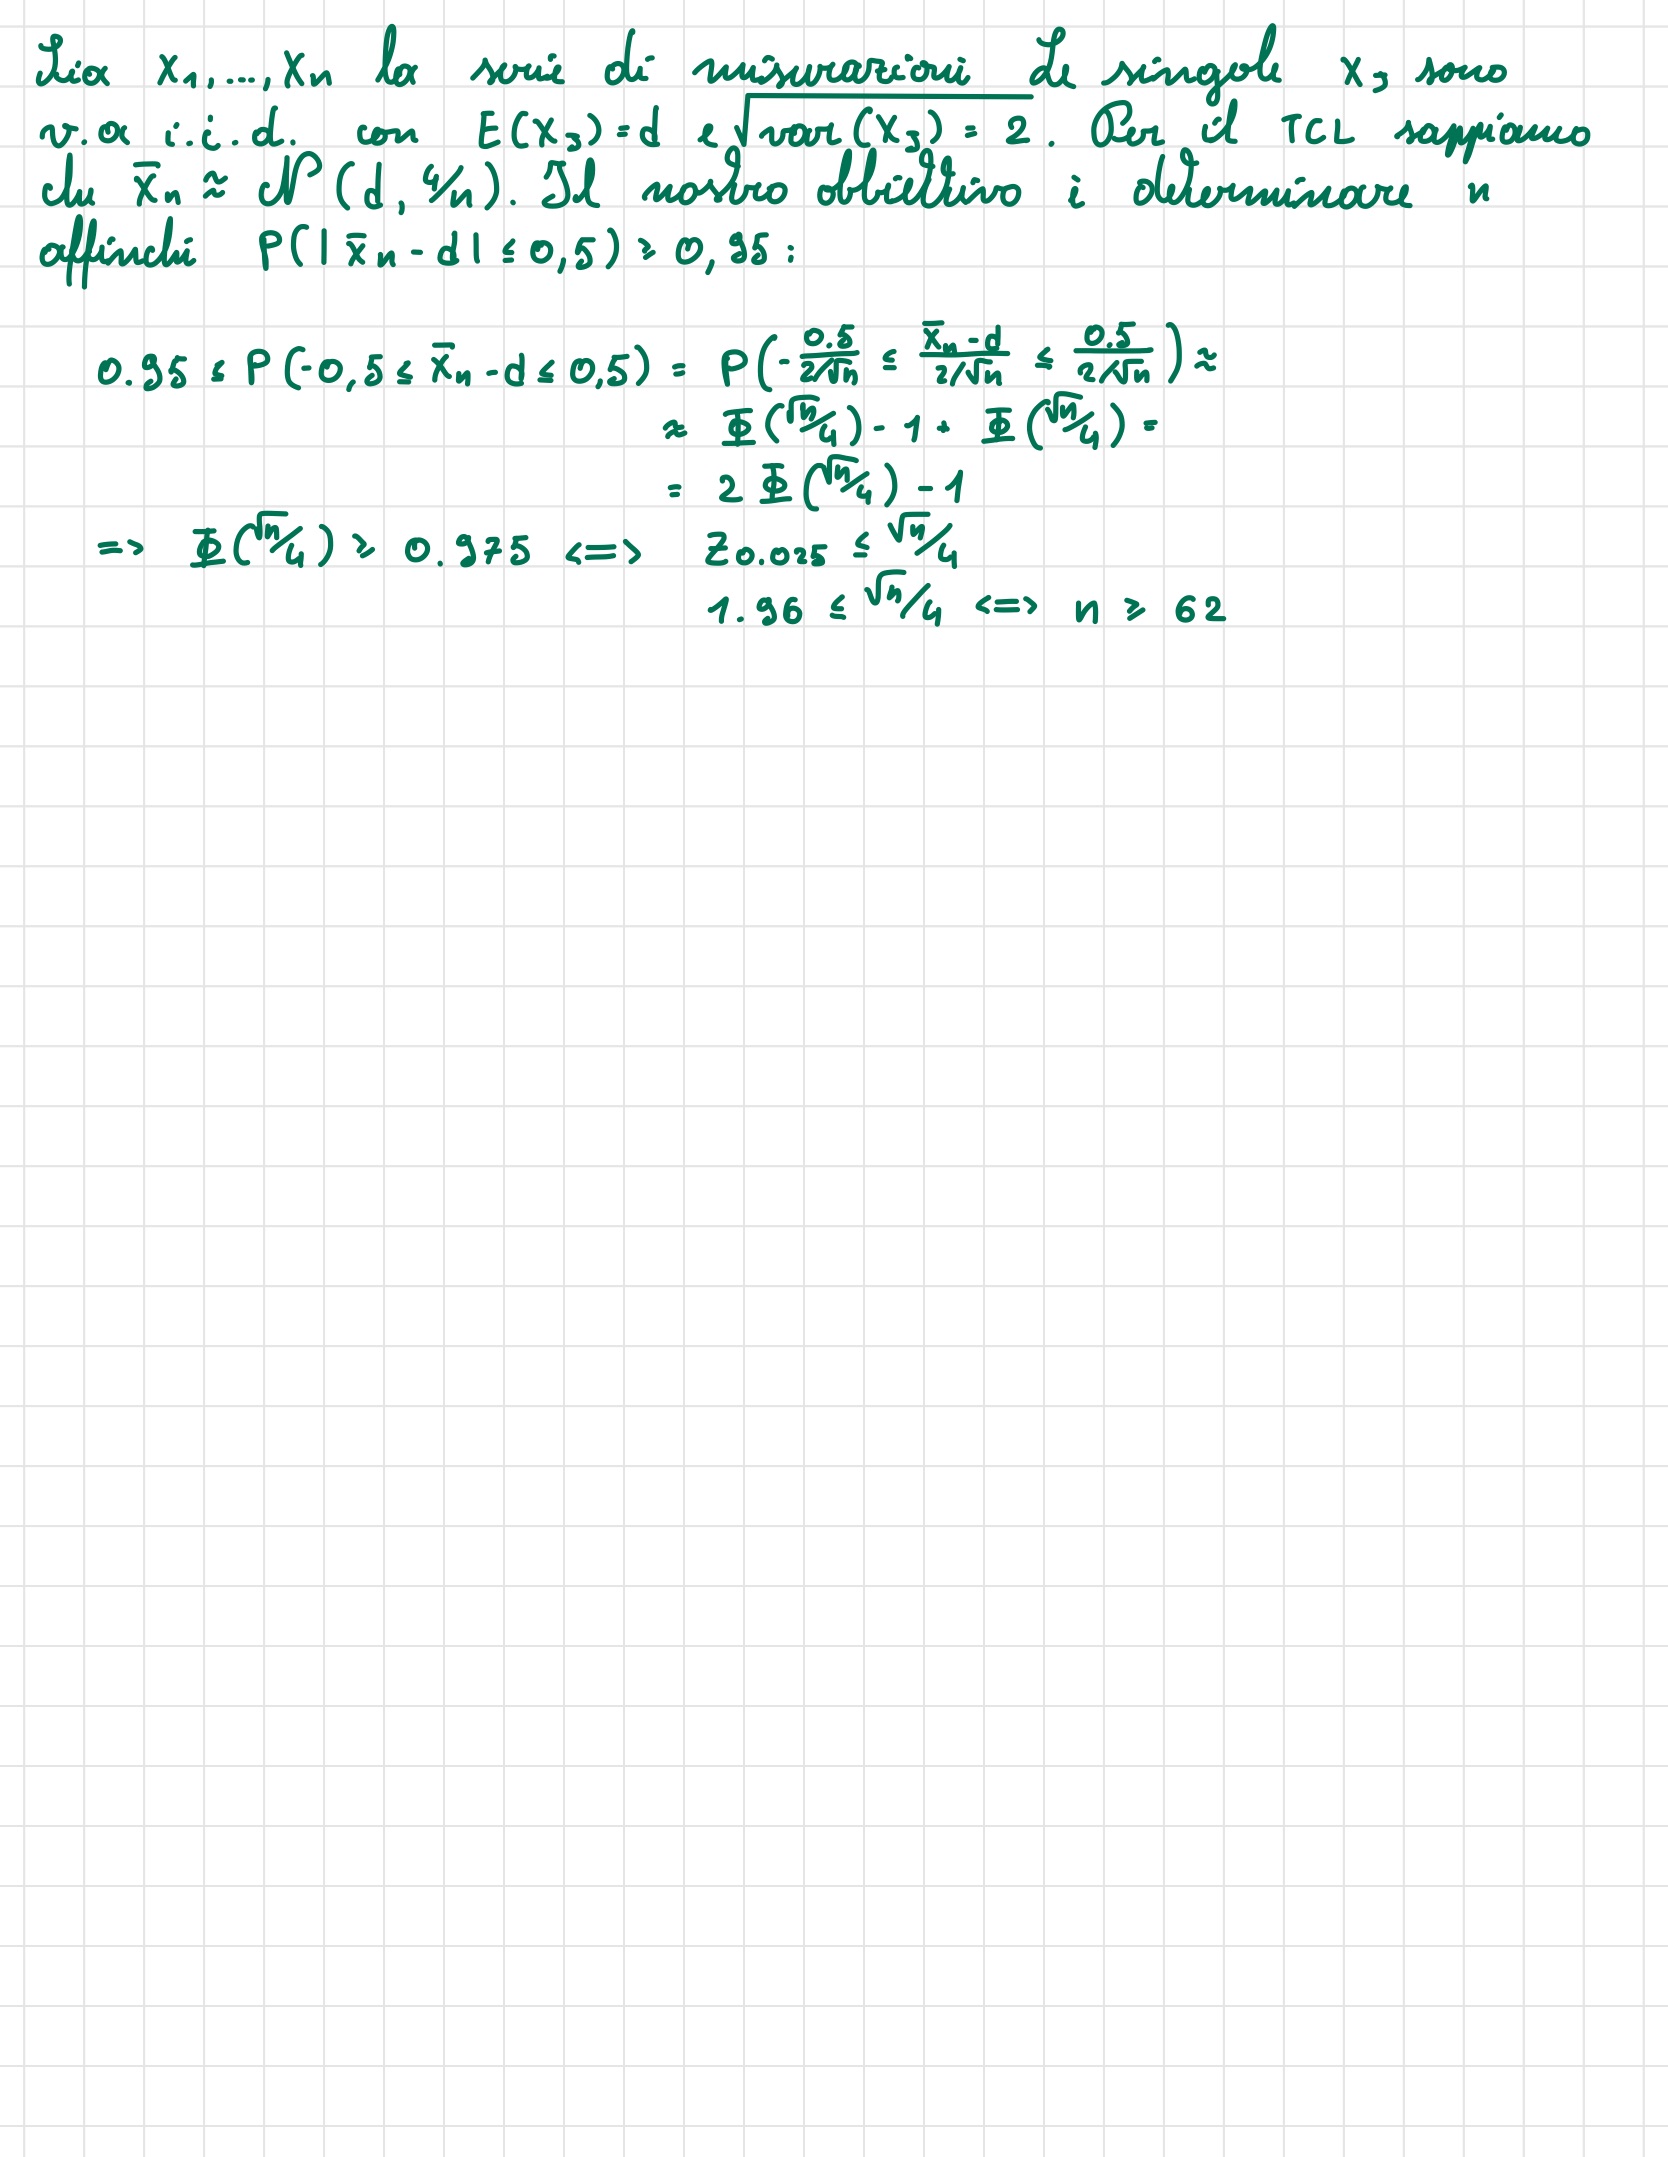 Sia X₁,...,Xₙ la serie di misurazioni Le singole Xⱼ sono
v.a i.i.d. con E(Xⱼ)=d e √var(Xⱼ) = 2. Per il TCL sappiamo
che X̄ₙ ≈ N(d, 4/n). Il nostro obbiettivo è determinare n
affinché P(|X̄ₙ-d| ≤ 0,5) ≥ 0,95:
0.95 ≤ P(-0,5 ≤ X̄ₙ-d ≤ 0,5) = P(-0.5/(2/√n) ≤ (X̄ₙ-d)/(2/√n) ≤ 0.5/(2/√n)) ≈
≈ Φ(√n/4) - 1 + Φ(√n/4) =
= 2Φ(√n/4) - 1
=> Φ(√n/4) ≥ 0.975 <=> Z₀.₀₂₅ ≤ √n/4
1.96 ≤ √n/4 <=> n ≥ 62